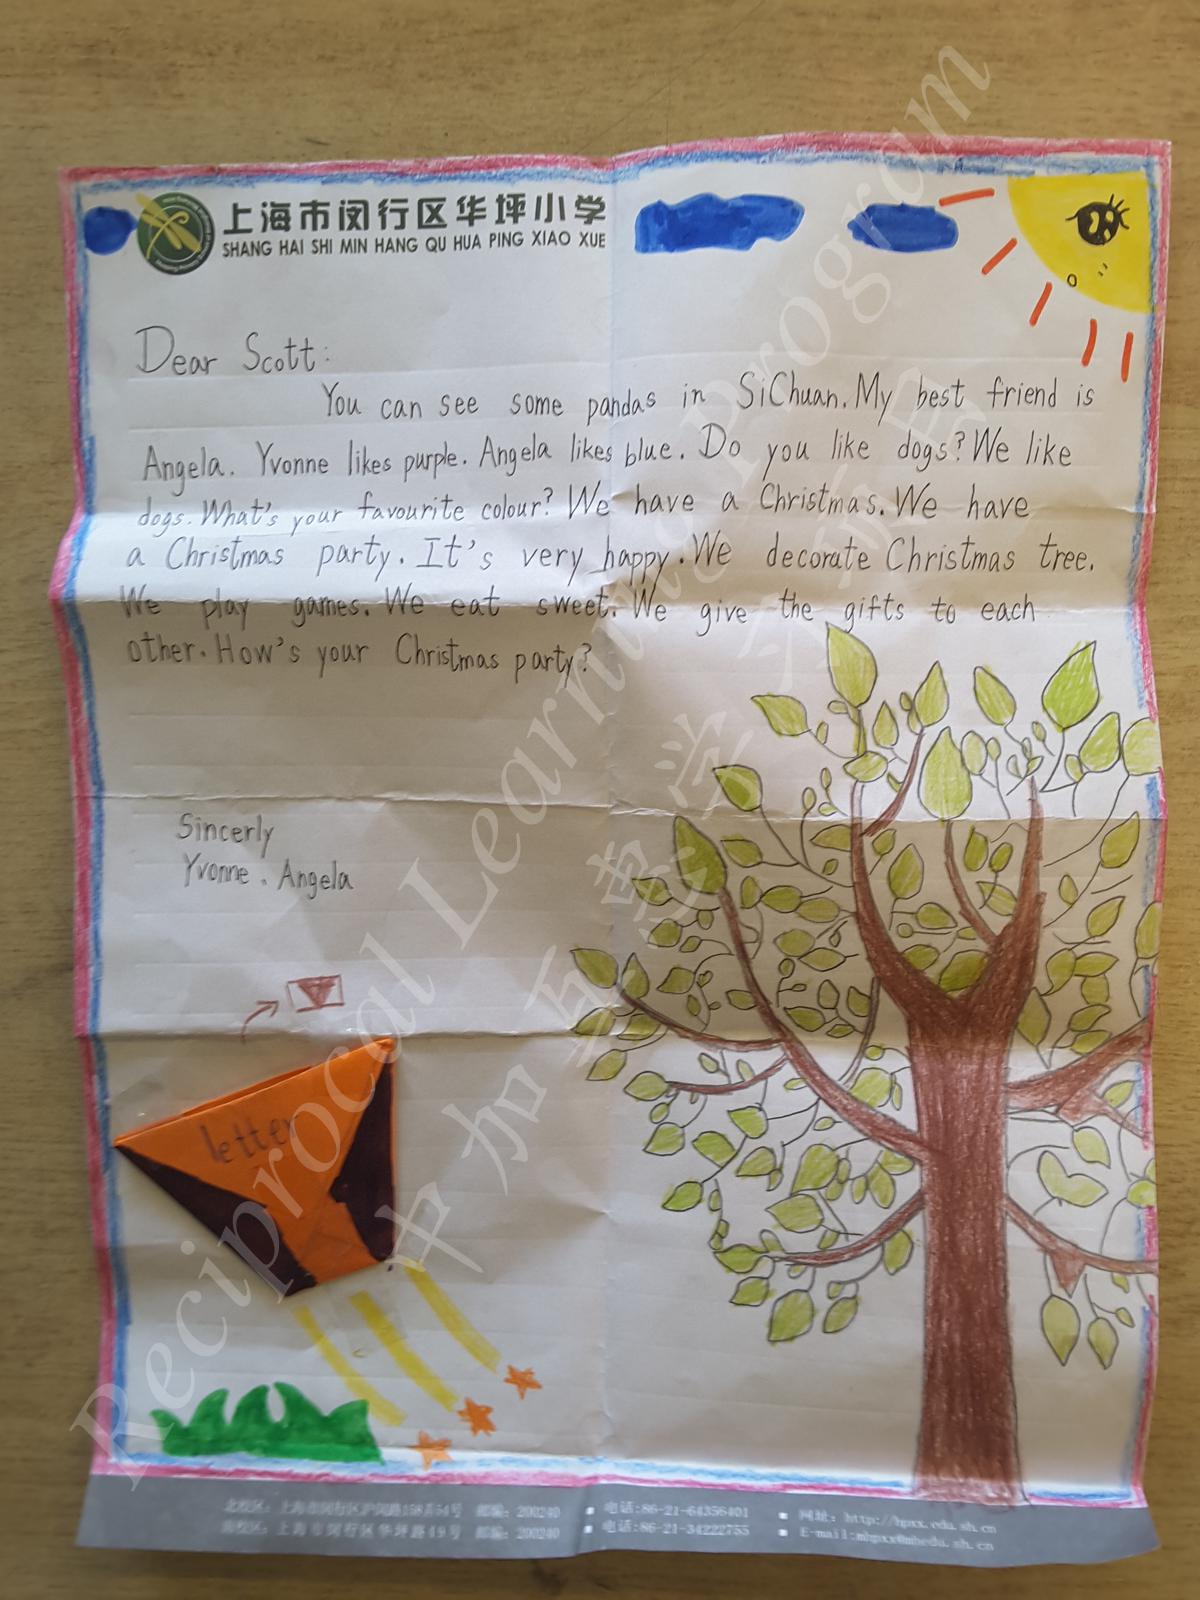 上海市闵行区华坪小学
SHANG HAI SHI MIN HANG QU HUA PING XIAO XUE
Dear Scott:
You can see some pandas in SiChuan. My best friend is
Angela. Yvonne likes purple. Angela likes blue. Do you like dogs? We like
dogs. What's your favourite colour? We have a Christmas. We have
a Christmas party. It's very happy. We decorate Christmas tree.
We play games. We eat sweet. We give the gifts to each
other. How's your Christmas party?
Sincerly
Yvonne. Angela
letter
北校区: 上海市闵行区沪闵路158弄54号 邮编: 200240 ▪ 电话:86-21-64356401 ▪ 网址: http://hpxx.edu.sh.cn
南校区: 上海市闵行区华坪路49号 邮编: 200240 ▪ 电话:86-21-34222755 ▪ E-mail:mhpxx@mhedu.sh.cn
Reciprocal Learning Program
中加互惠学习项目